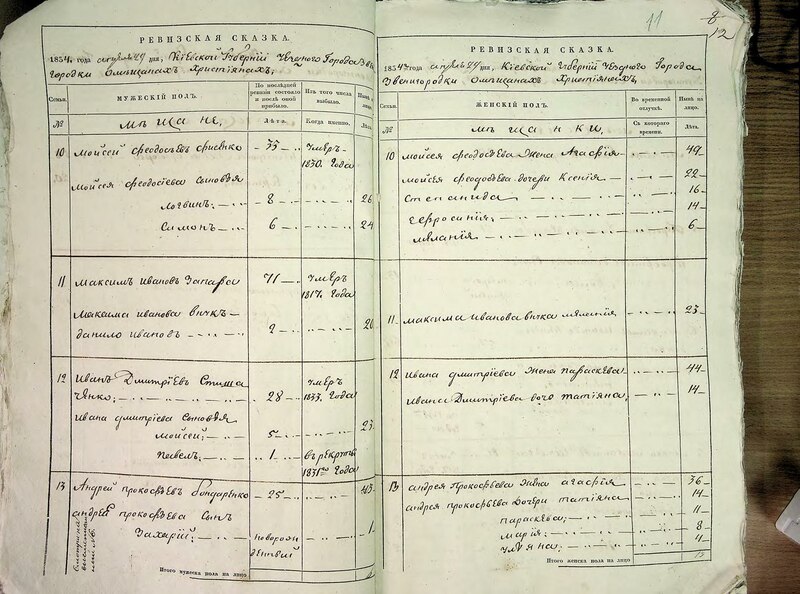 РЕВИЗСКАЯ СКАЗКА.
1834. года апрѣля 27 дня, Кіевской Губерніи Уѣзднаго Города Зве
городки О мѣщанахъ Христіянахъ,
По послѣдней ревизіи состояло и послѣ оной прибыло.
Изъ того числа выбыло.
Семьи.
МУЖЕСКІЙ ПОЛЪ.
№
мѣщане,
Лѣта.
Когда именно.
Лѣта.
10 мойсей феодосѣевъ 35 умеръ
1830. года
мойсея феодосіева сыновѣя
логвинъ; 8 26
симонъ 6 24
11 максимъ ивановъ 71 умеръ
1817. года
максима иванова внукъ
данило ивановъ 2 20
12 Иванъ Дмитріевъ
28 умеръ
1833. года
ивана дмитріева сыновѣя 23
мойсей; 5
павелъ; 1 въ рекруты
1831го года
13 Андрей прокофѣевъ бондаренко 25 43
андрей прокофѣева сынъ
Захарій; новорож 1
денный
Итого мужеска пола на лицо
11
8
12
РЕВИЗСКАЯ СКАЗКА.
1834. года апрѣля 27 дня, Кіевской Губерніи Уѣзднаго Города
Звенигородки О мѣщанахъ Христіянахъ,
Семьи.
ЖЕНСКІЙ ПОЛЪ.
Во временной отлучкѣ.
Нынѣ на лицо.
№
мѣщанки,
Съ котораго времени.
Лѣта.
10 мойсея феодосѣева жена Агафія 49
мойсея феодосѣева дочери Ксенія 22
Степанида 16
Ефросинія; 14
меланія 6
11. максима иванова внка меланія 23
12 ивана дмитріева жена параскева 44
ивана Дмитріева дочь татіяна 14
13 андрея прокофьева жена агафія 36
андрея прокофьева Дочери татіяна 14
параскева; 11
марія; 8
уліяна; 4
Итого женска пола на лицо